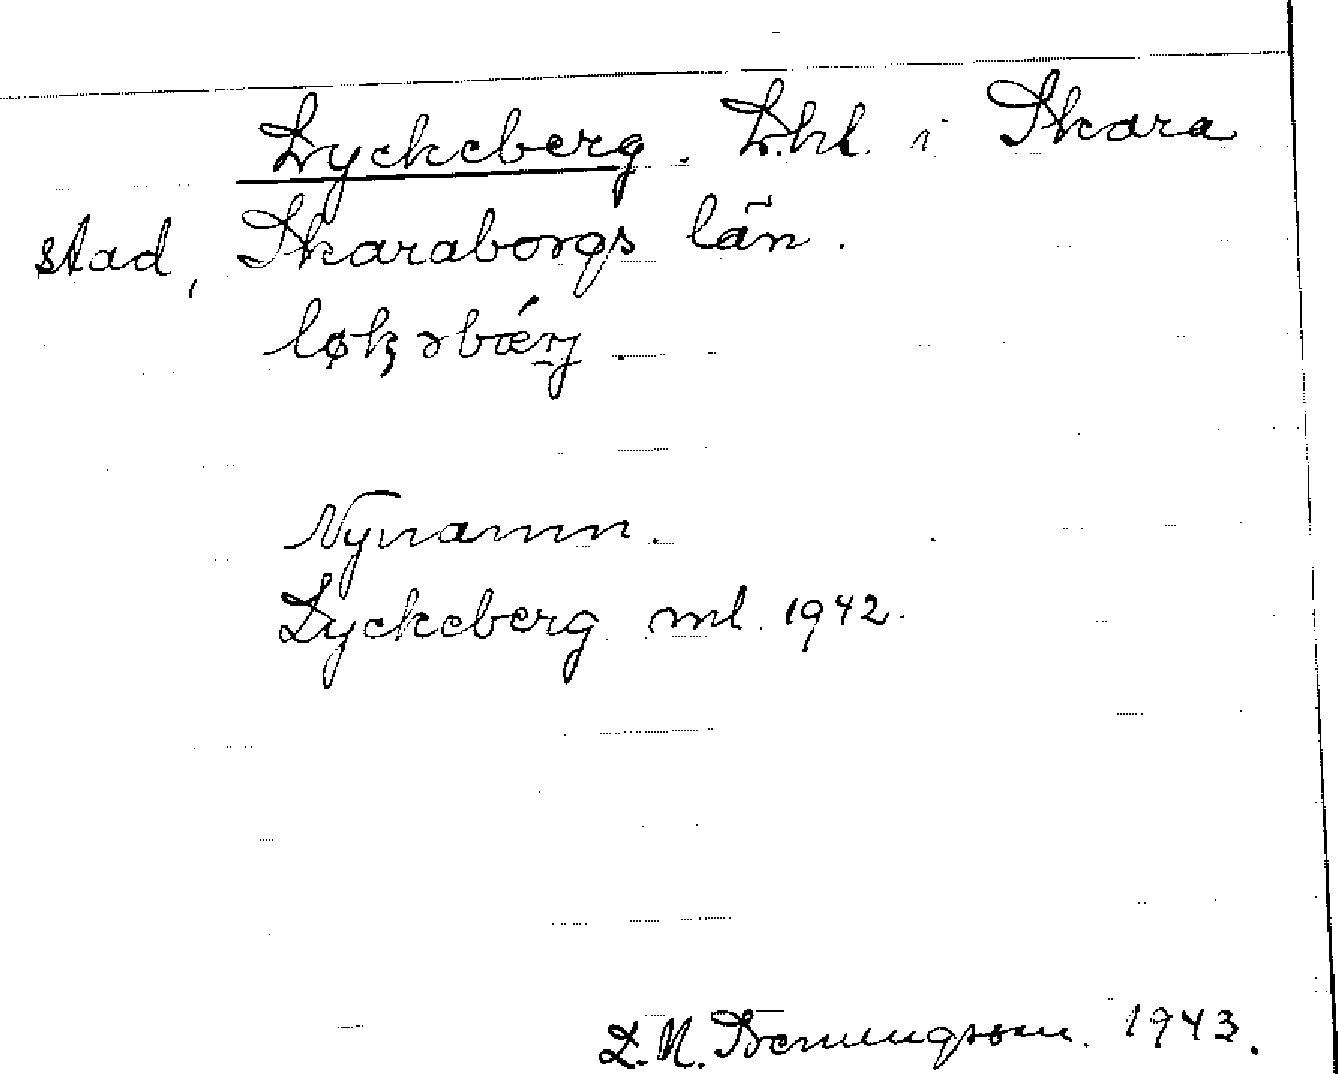 Lyckeberg. L.hl. i Skara
stad, Skaraborgs län.
løkəbǽrj
Nynamn.
Lyckeberg ml. 1942.
L. N. 1943.